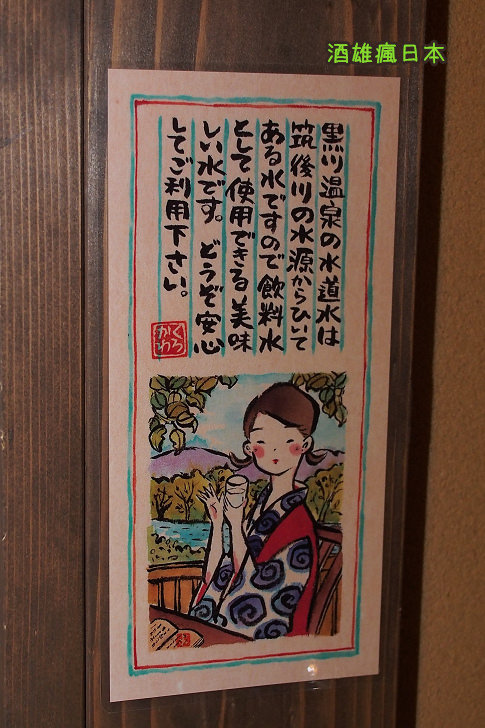 酒雄瘋日本
黒川温泉の水道水は
筑後川の水源からひいて
ある水ですので飲料水
として使用できる美味
しい水です。どうぞ安心
してご利用下さい。
くろ
かわ